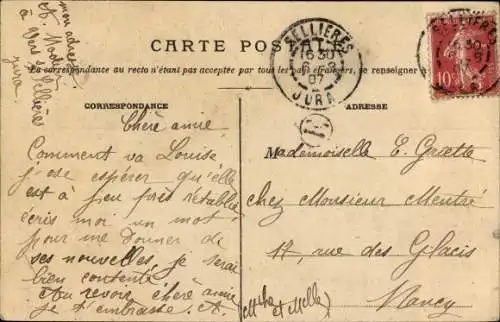 mon adresse
à Vers s/ Sellières
Jura
CARTE POSTALE
La correspondance au recto n'étant pas acceptée par tous les pays étrangers, se renseigner à
SELLIÈRES
1630
07
JURA
SELLIÈRES
1630
07
10
CORRESPONDANCE
ADRESSE
Chère amie
Comment va Louise
j'ose espérer qu'elle
est à peu près rétablie
écris moi un mot
pour me donner de
ses nouvelles, je serai
bien contente
Au revoir chère amie
je t'embrasse. A
Mademoiselle E.
chez Monsieur
17, rue des Glacis
Nancy
(Mthe et Melle)